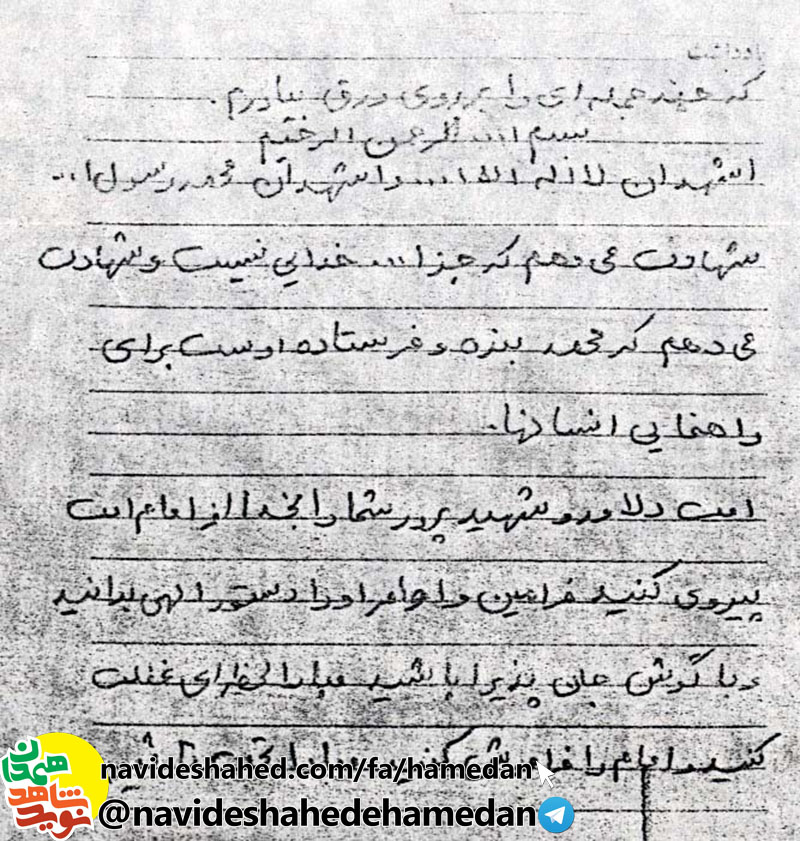 یادداشت
که چند جمله‌ای را بر روی ورق بیاورم.
بسم الله الرحمن الرحیم
اشهد ان لا اله الا الله و اشهد ان محمد رسول ا...
شهادت می دهم که جز الله خدایی نیست و شهادت
می دهم که محمد بنده و فرستاده اوست برای
راهنمایی انسانها.
امت دلاور و شهید پرور شما را بخدا از امام امت
پیروی کنید فرامین و اوامر او را دستور الهی بدانید
و با گوش جان پذیرا باشید مبادا لحظه ای غفلت
کنید و امام را فراموش کنید
نوید شاهد
همدان
navideshahed.com/fa/hamedan
@navideshahedehamedan